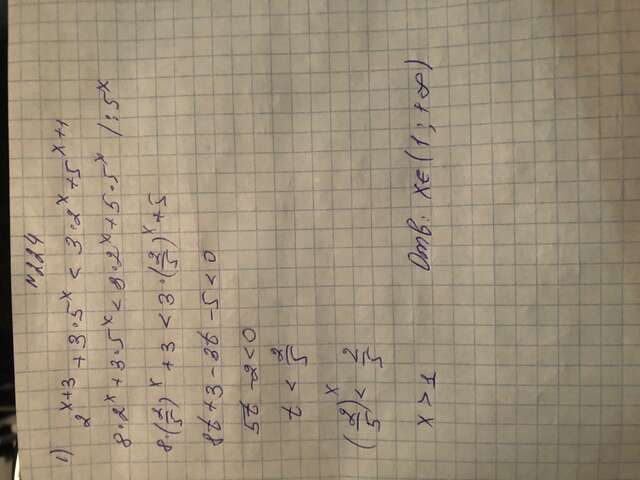 №224
1) 2^{x+3} + 3·5^x < 3·2^x + 5^{x+1}
8·2^x + 3·5^x < 3·2^x + 5·5^x /:5^x
8·(2/5)^x + 3 < 3·(2/5)^x + 5
8t + 3 - 3t - 5 < 0
5t - 2 < 0
t < 2/5
(2/5)^x < 2/5
x > 1 Отв: x∈(1;+∞)